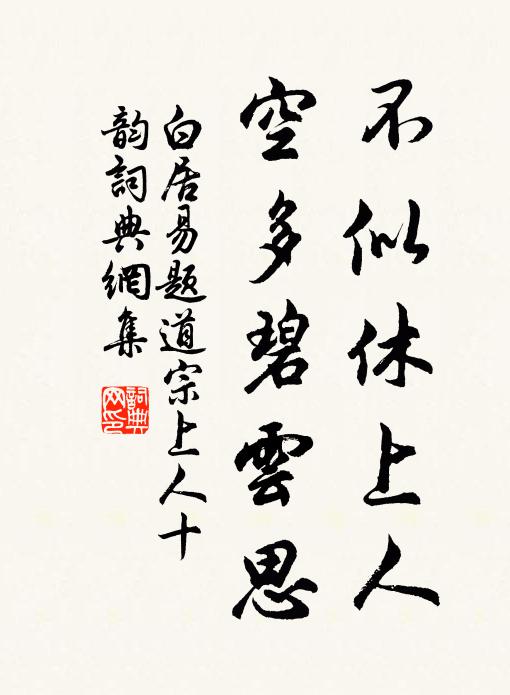 不似休上人
空多碧雲思
白居易題道宗上人十
韵詞典網集
詞典
网印